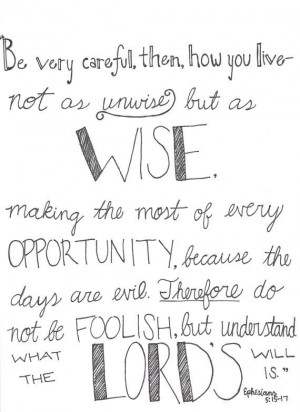 Be very careful, then, how you live-
not as unwise but as
WISE,
making the most of every
OPPORTUNITY, because the
days are evil. Therefore do
not be FOOLISH, but understand
WHAT THE LORD'S WILL IS."
Ephesians 5:15-17